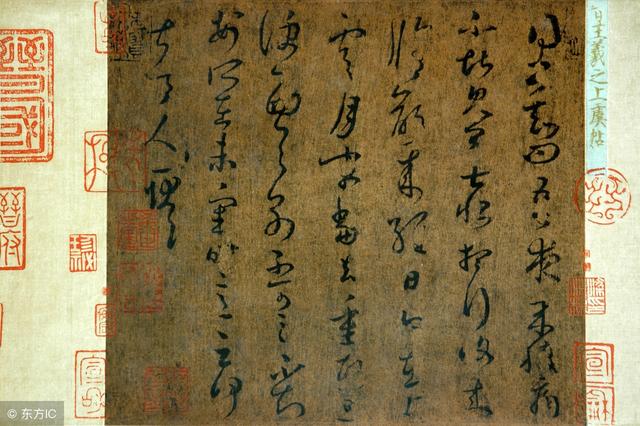 晉王羲之上虞帖
得書知問吾夜來腹痛
不堪見卿甚恨想行復來
脩齡來經日今在上
虞月末當去重熙旦
便西與別不可言不知
安所在未審時意云何
甚令人耿耿
晉府
© 东方IC